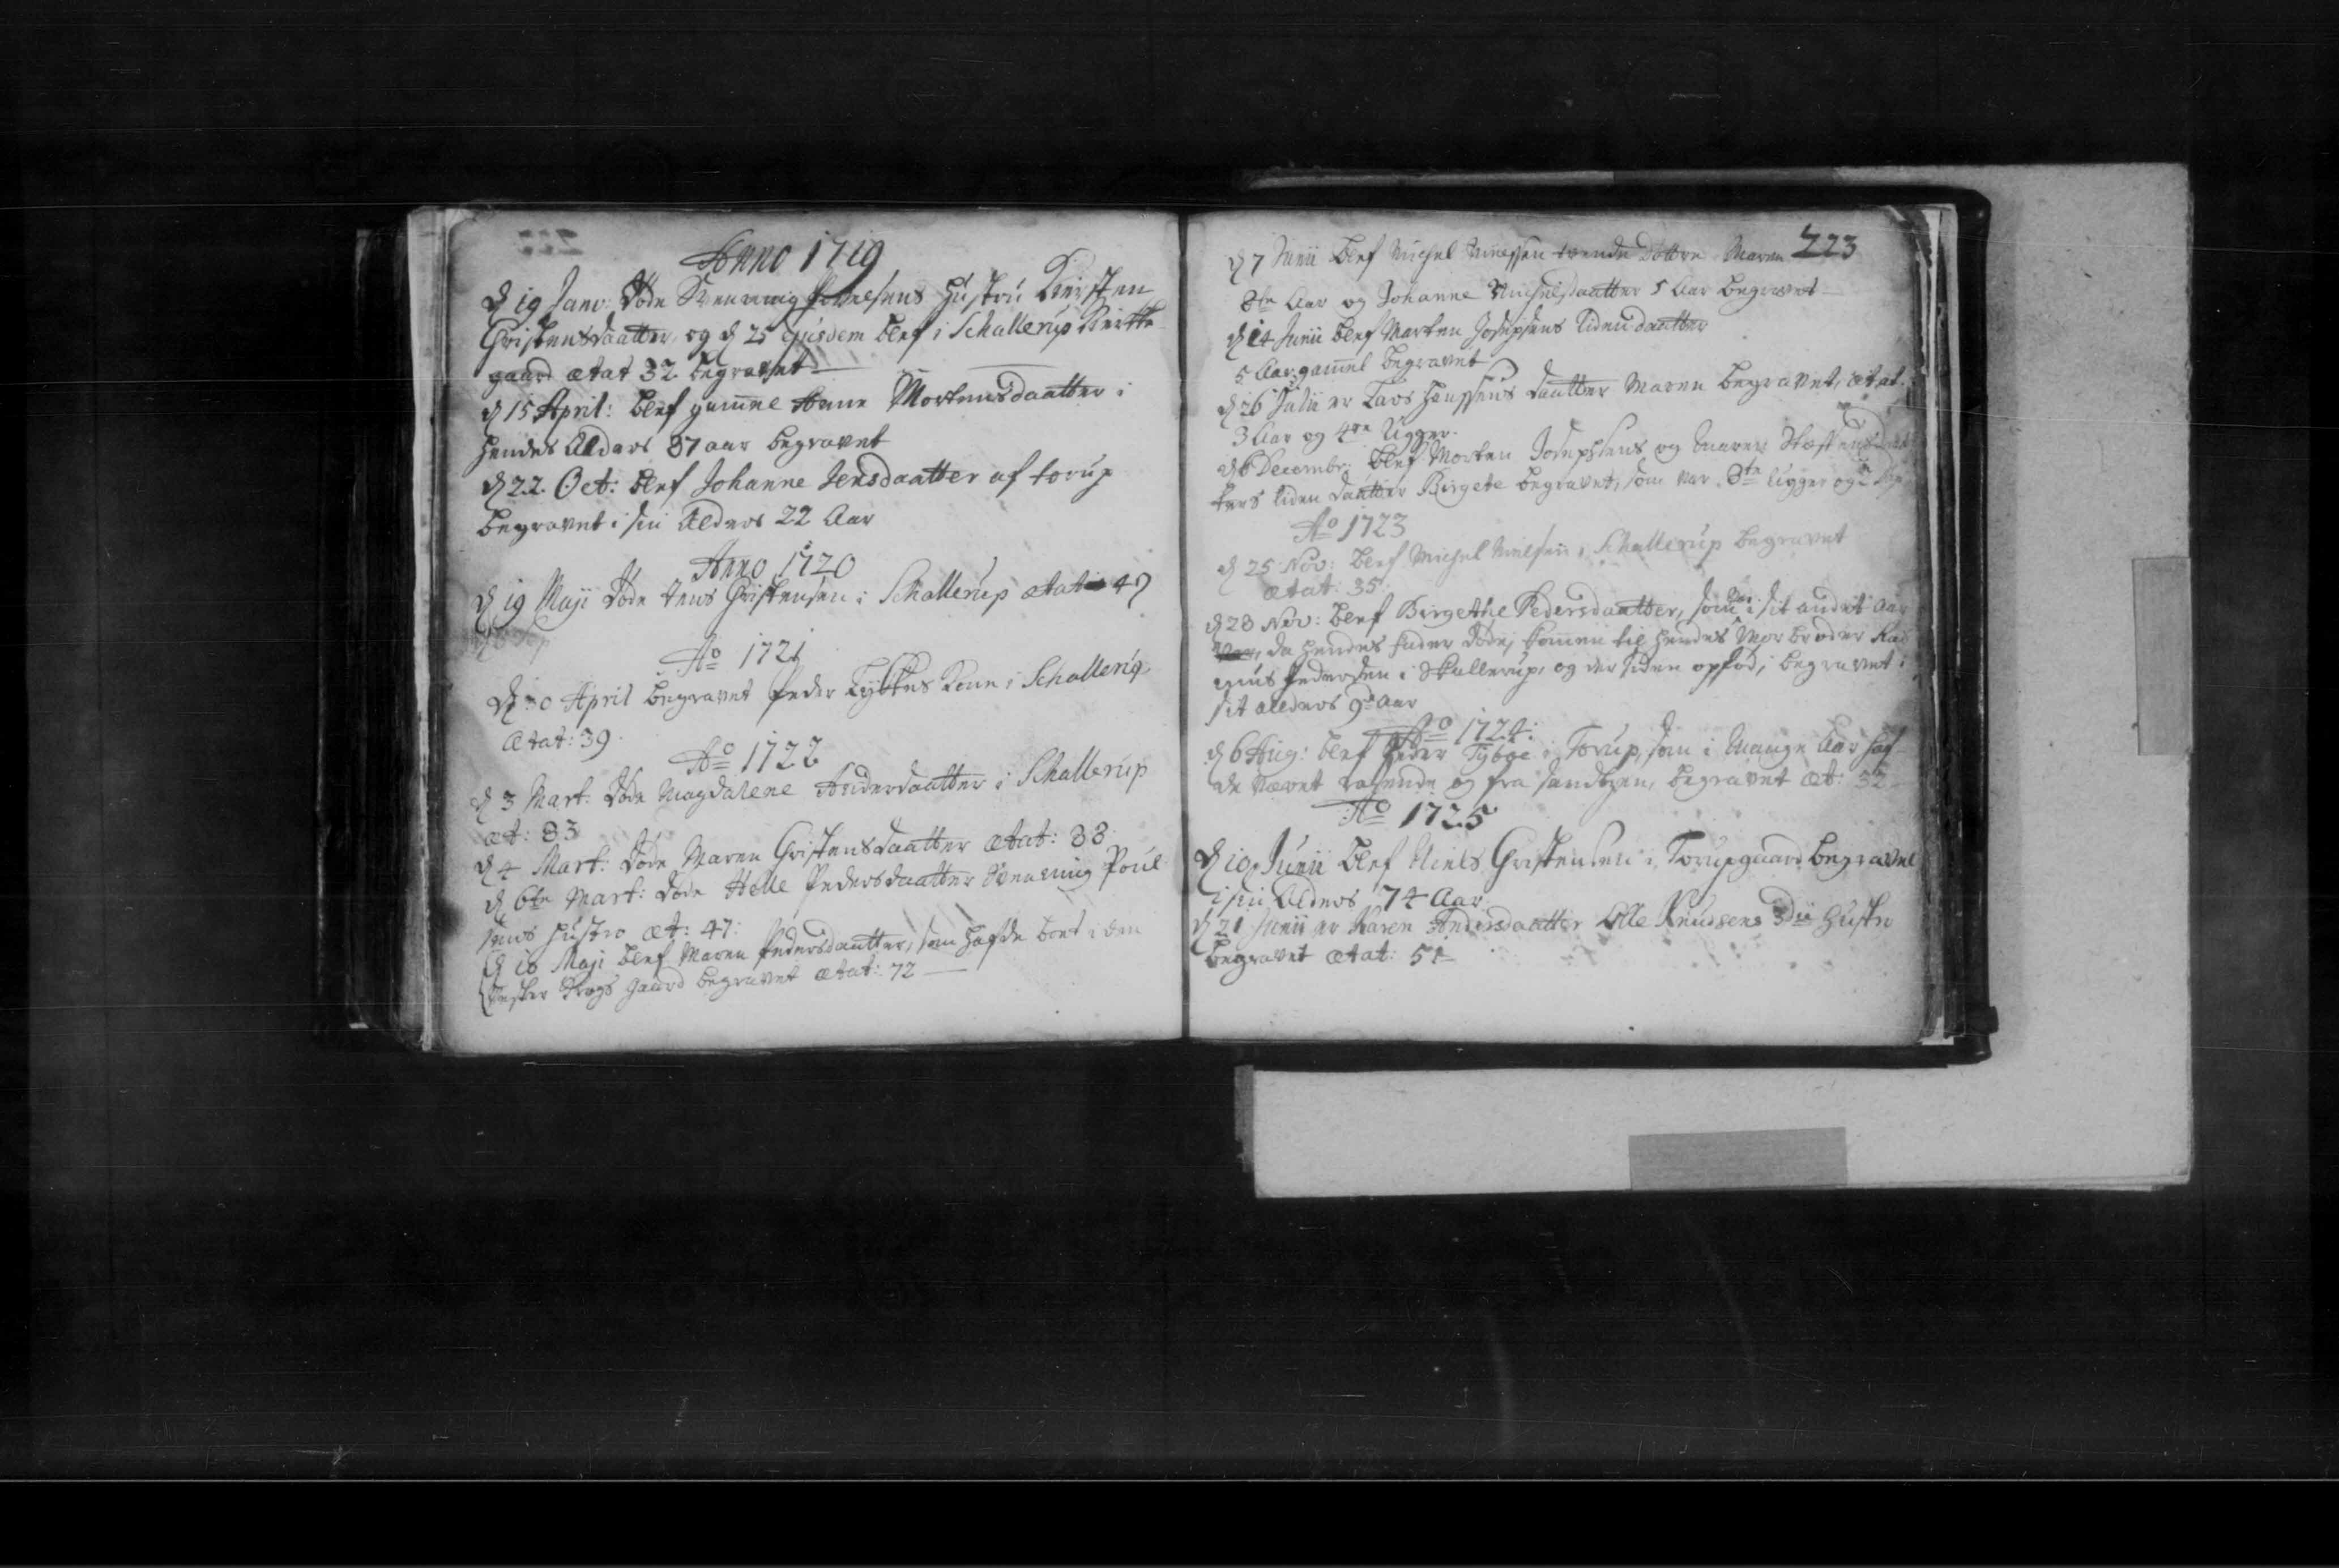 Anno 1719
D 19 Janv: Døde Svenning Poulsens Hustru Kiersten
Christensdaatter, og D 25 ejusdem blef i Schallerup Kirke-
gaard ætat 32 begravet
D 15 April: blef gam̄el Anne Mortensdaatter i
hendes Alders 87 aar begravet
D 22 Oct: blef Johanne Jensdaatter af torup
begravet i sin Alders 22 Aar
Anno 1720
D 19 Maji Døde Jens Christensen i Schallerup ætat 47
Ao 1721
D 30 April begravet Peder Kone i Schallerup
Ætat: 39.
Ao 1722
D 3 Mart: Døde Magdalene Andersdaatter i Schallerup
æt: 83
D 4 Mart: Døde Maren Christensdaatter ætat: 38
D 6te Mart: Døde Helle Pedersdaatter Svenning Poul
sens Hustro æt: 47:
D 10 Maji blef Maren Pedersdaatter, som hafde boet i den
Vester Krogs gaard begravet ætat: 72
223
D 7 Junii blef Michel Nielssen tvende Døttre Maren
8te Aar og Johanne Michelsdaatter 5 Aar begravet
D 14 Junii blef Morten Josephsens liden daatter
5 Aar gam̄el begravet
D 26 Julii er Lars Henssens daatter Maren begravet, ætat.
3 Aar og 4re Ugger.
D 6 Decembr: blef Morten Josephsens og Maren
ters liden daatter Birgete begravet, som var 8te Ugger og 2
Ao 1723
D 25 Nov: blef Michel Nielsen i Schallerup begravet
ætat: 35.
D 28 Nov: blef Birgethe Pedersdaatter, som var i sit andet Aar
da hendes fader døde, kom̄en til hendes Morbroder Ras
mus Pedersen i Skallerup, og der siden opfød, begravet i
sit alders 9de Aar
Ao 1724:
D 6 Aug: blef Peder Tyboe i Torup, som i Mange Aar haf-
de Været rasende og fra sandtzen, begravet æt: 32
Ao 1725
D 10 Junii blef Niels Christensen i Torupgaard begravet
i sin Alders 74 Aar.
D 21 Junii er Karen Andersdaatter Olle Knudsens 3die Hustro
begravet ætat: 51